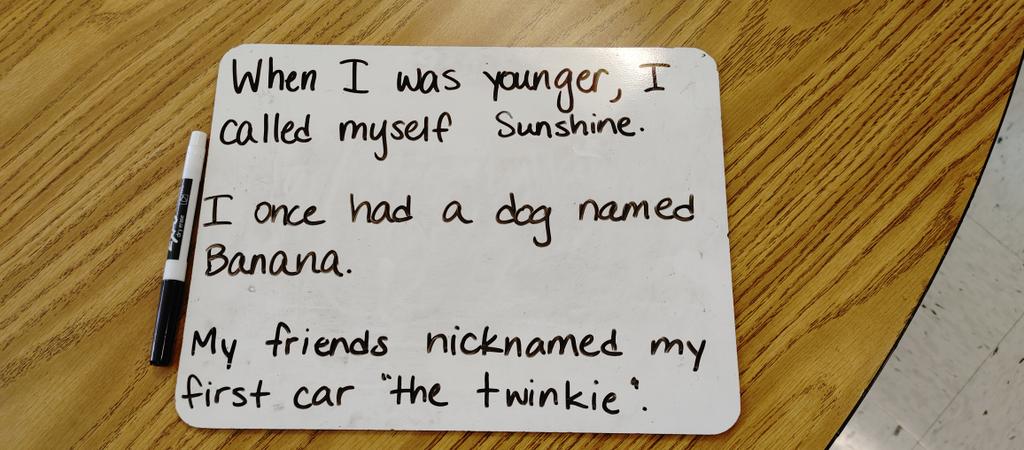 When I was younger, I
called myself Sunshine.
I once had a dog named
Banana.
My friends nicknamed my
first car "the twinkie".